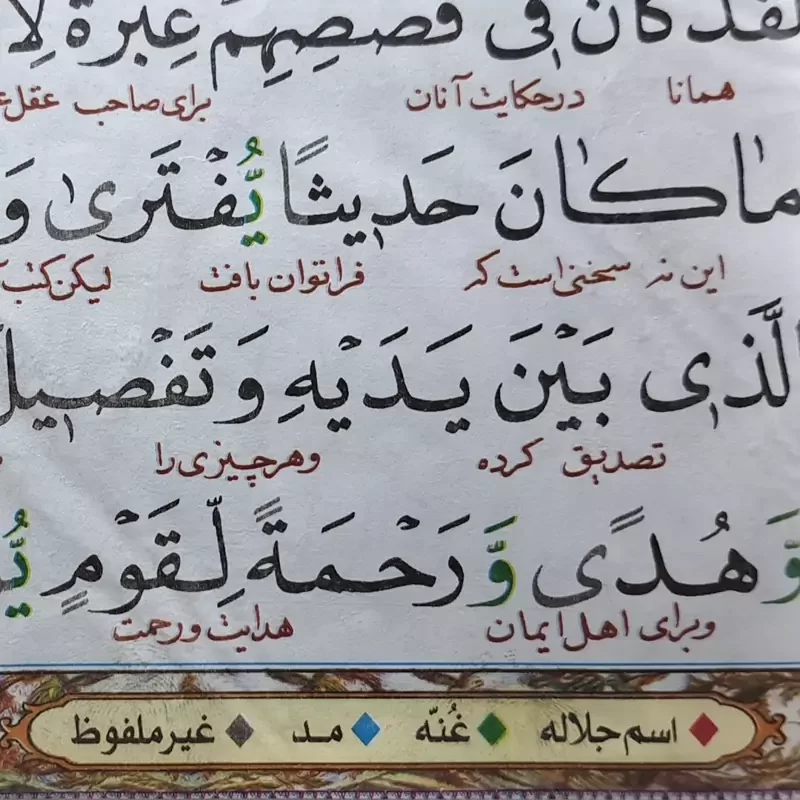 لَقَدْ كَانَ فِي قَصَصِهِمْ عِبْرَةٌ
همانا در حکایت آنان برای صاحب عقل
مَا كَانَ حَدِيثًا يُّفْتَرَىٰ وَ
این نه سخنی است که فرا توان بافت لیکن کتب
الَّذِي بَيْنَ يَدَيْهِ وَ تَفْصِيلَ
تصدیق کرده و هر چیزی را
وَّ هُدًى وَّ رَحْمَةً لِّقَوْمٍ
و برای اهل ایمان هدایت و رحمت
اسم جلاله غُنّه مد غیر ملفوظ